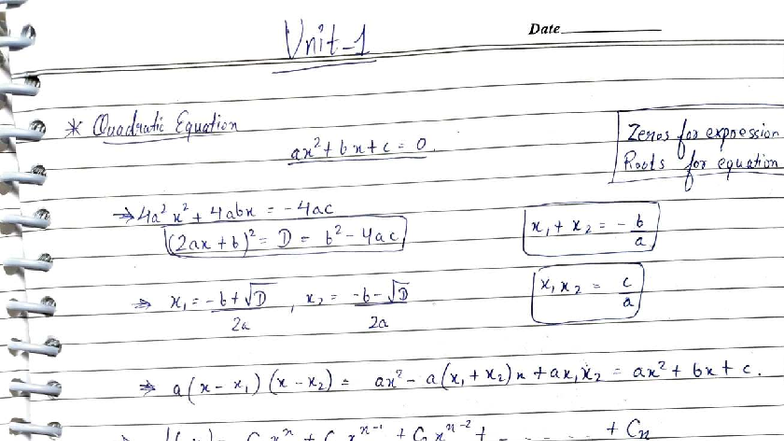 Unit-1
Date
* Quadratic Equation
ax² + bx + c = 0.
Zeros for expression
Roots for equation
⇒ 4a²x² + 4abx = -4ac
(2ax + b)² = D = b² - 4ac
x₁ + x₂ = -b/a
⇒ x₁ = (-b + √D)/2a , x₂ = (-b - √D)/2a
x₁x₂ = c/a
⇒ a(x - x₁)(x - x₂) = ax² - a(x₁ + x₂)x + ax₁x₂ = ax² + bx + c.
xⁿ + xⁿ⁻¹ + xⁿ⁻² + + Cn